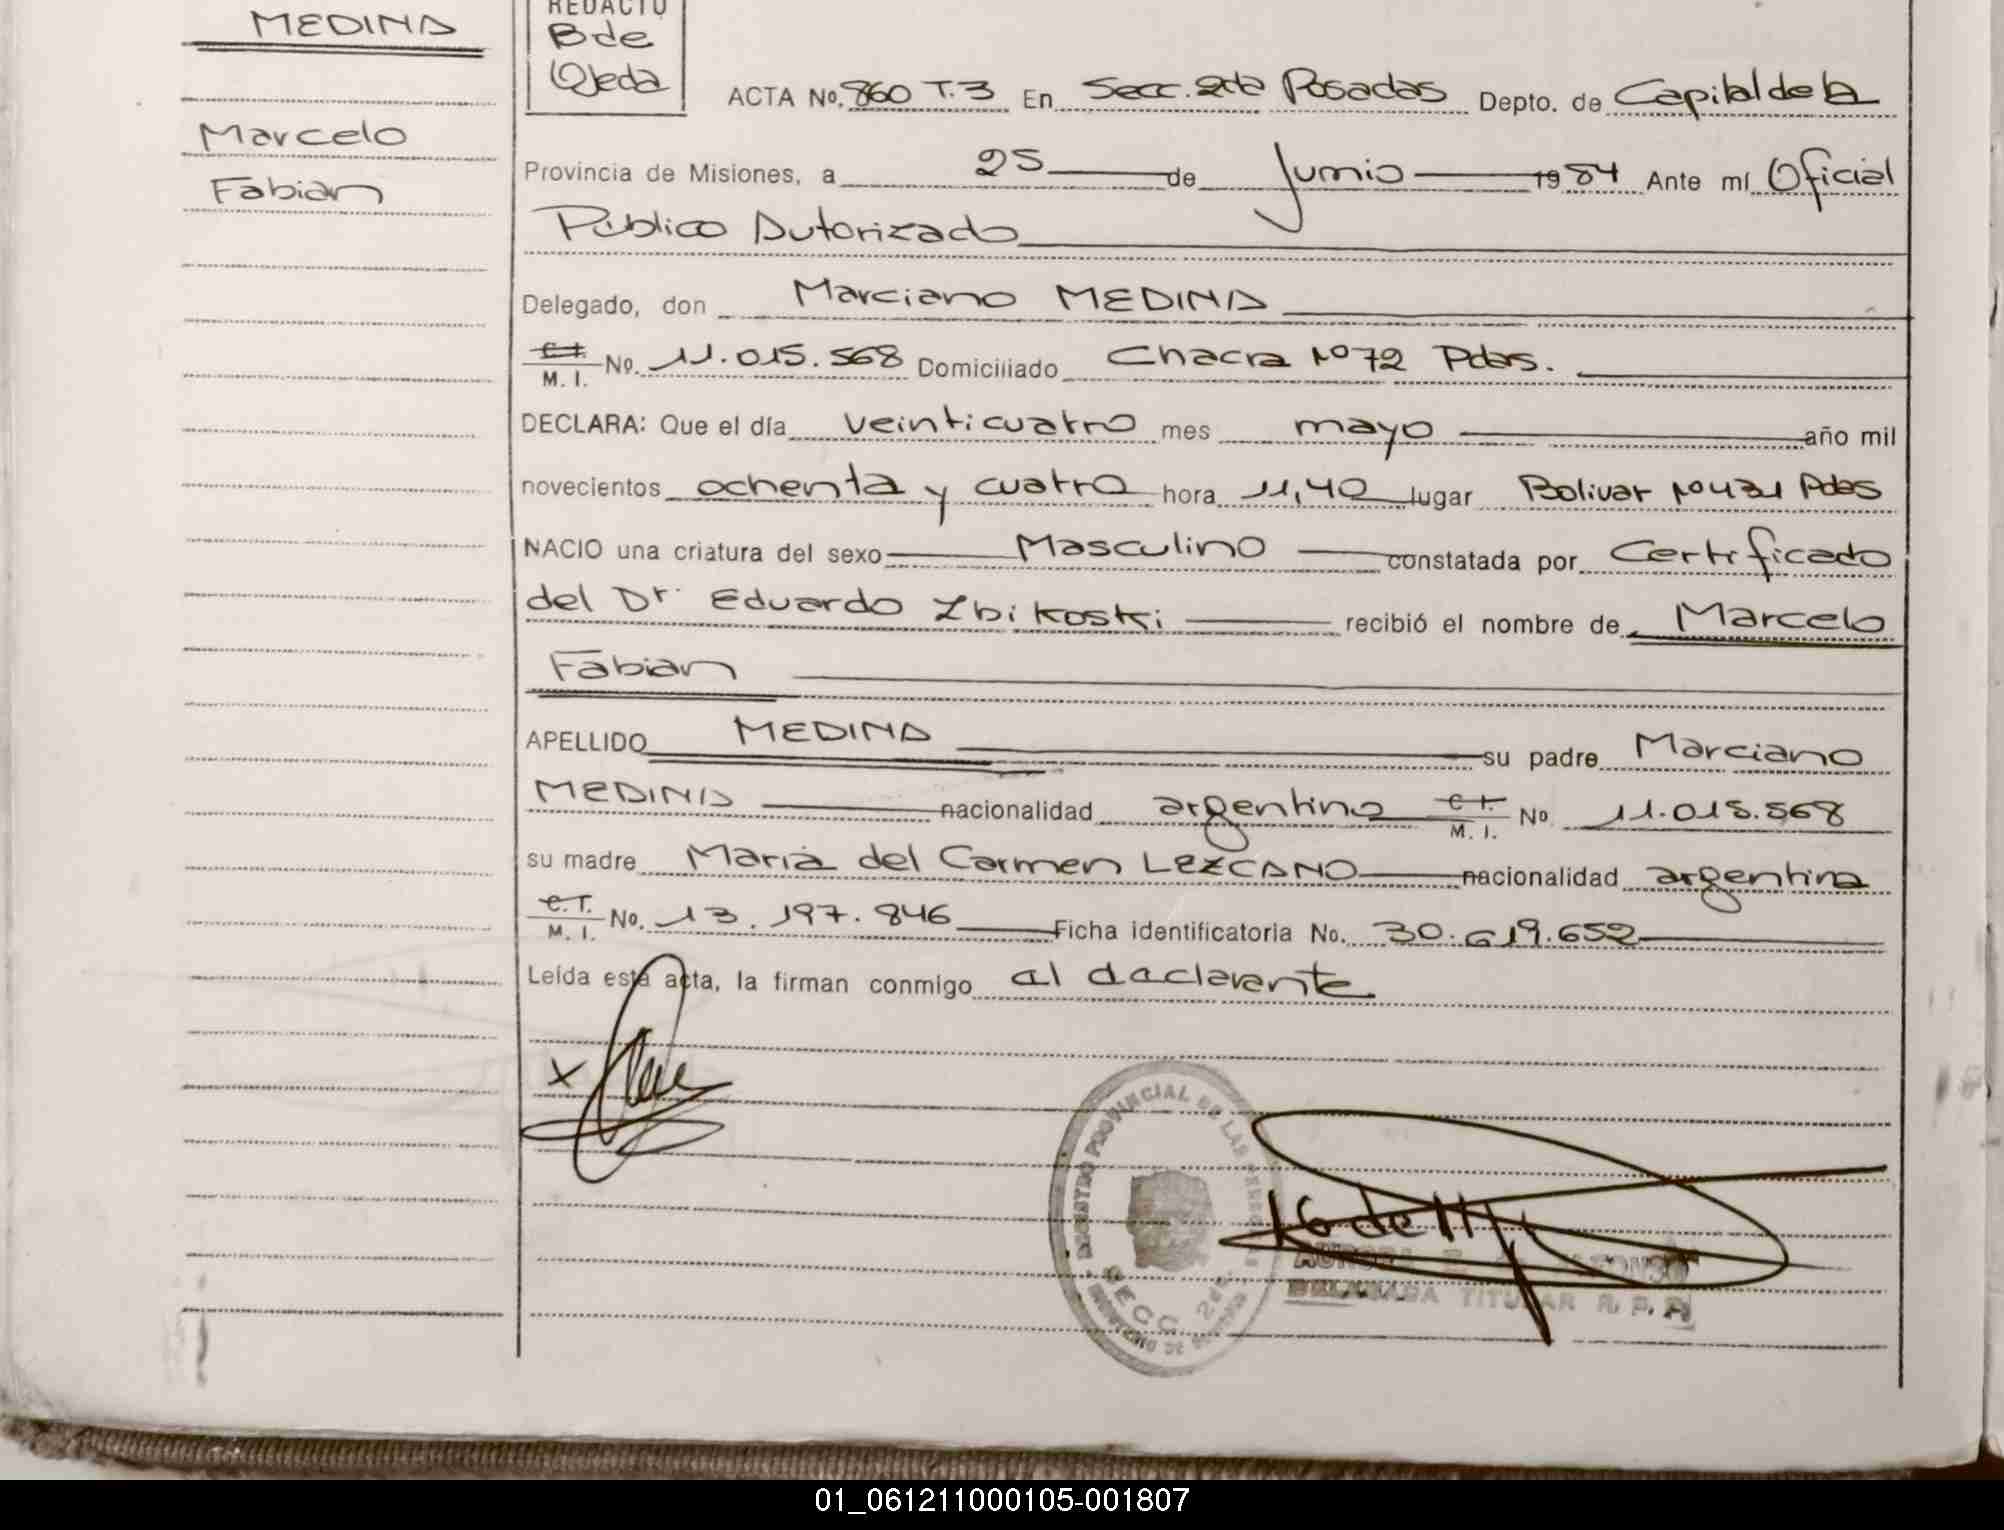 MEDINA
Marcelo
Fabian
REDACTO
B de
Ojeda
ACTA No. 860 T.3 En Secc. 2da Posadas Depto. de Capital de la
Provincia de Misiones, a 25 de Junio 1984 Ante mí Oficial
Público Autorizado
Delegado, don Marciano MEDINA
C.I. M. I. No. 11.015.568 Domiciliado Chacra Nº 72 Pdas.
DECLARA: Que el día veinticuatro mes mayo año mil
novecientos ochenta y cuatro hora 11,40 lugar Bolivar Nº 431 Pdas
NACIO una criatura del sexo Masculino constatada por Certificado
del Dr. Eduardo Zbikoski recibió el nombre de Marcelo
Fabian
APELLIDO MEDINA su padre Marciano
MEDINA nacionalidad argentino C.I. M. I. No 11.015.568
su madre Maria del Carmen LEZCANO nacionalidad argentina
C.I. M. I. No. 13.197.846 Ficha identificatoria No. 30.619.652
Leída esta acta, la firman conmigo al daclarante
x
REGISTRO PROVINCIAL DE LAS
SECC. 2da.
AURORA E.
TITULAR R. P. P.
01_061211000105-001807